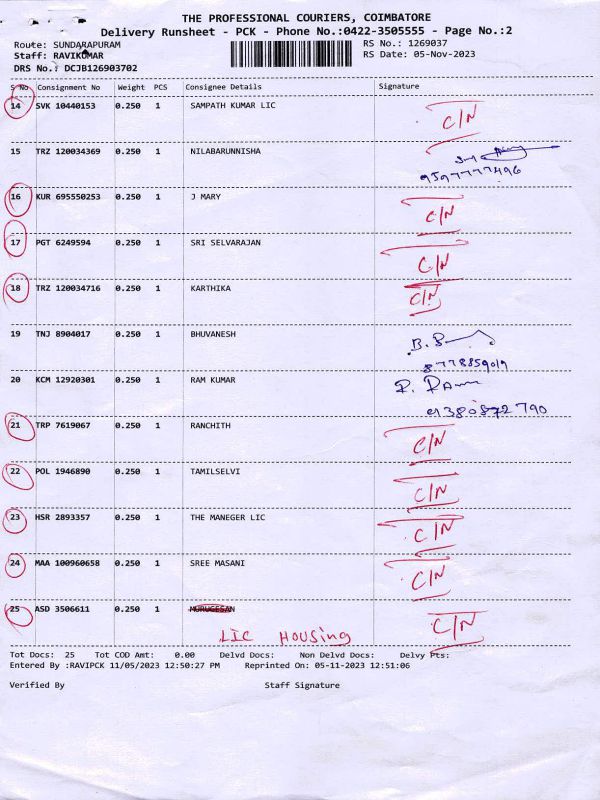 THE PROFESSIONAL COURIERS, COIMBATORE
Delivery Runsheet - PCK - Phone No.:0422-3505555 - Page No.:2
Route: SUNDARAPURAM RS No.: 1269037
Staff: RAVIKUMAR RS Date: 05-Nov-2023
DRS No.: DCJB126903702
S No Consignment No Weight PCS Consignee Details Signature
14 SVK 10440153 0.250 1 SAMPATH KUMAR LIC C/N
15 TRZ 120034369 0.250 1 NILABARUNNISHA
9597777496
16 KUR 695550253 0.250 1 J MARY C/N
17 PGT 6249594 0.250 1 SRI SELVARAJAN C/N
18 TRZ 120034716 0.250 1 KARTHIKA C/N
19 TNJ 8904017 0.250 1 BHUVANESH B.B
8778859019
20 KCM 12920301 0.250 1 RAM KUMAR R. RAM
9380872790
21 TRP 7619067 0.250 1 RANCHITH C/N
22 POL 1946890 0.250 1 TAMILSELVI C/N
23 HSR 2893357 0.250 1 THE MANEGER LIC C/N
24 MAA 100960658 0.250 1 SREE MASANI C/N
25 ASD 3506611 0.250 1 MURUGESAN C/N
LIC HOUSING
Tot Docs: 25 Tot COD Amt: 0.00 Delvd Docs: Non Delvd Docs: Delvy Pts:
Entered By :RAVIPCK 11/05/2023 12:50:27 PM Reprinted On: 05-11-2023 12:51:06
Verified By Staff Signature